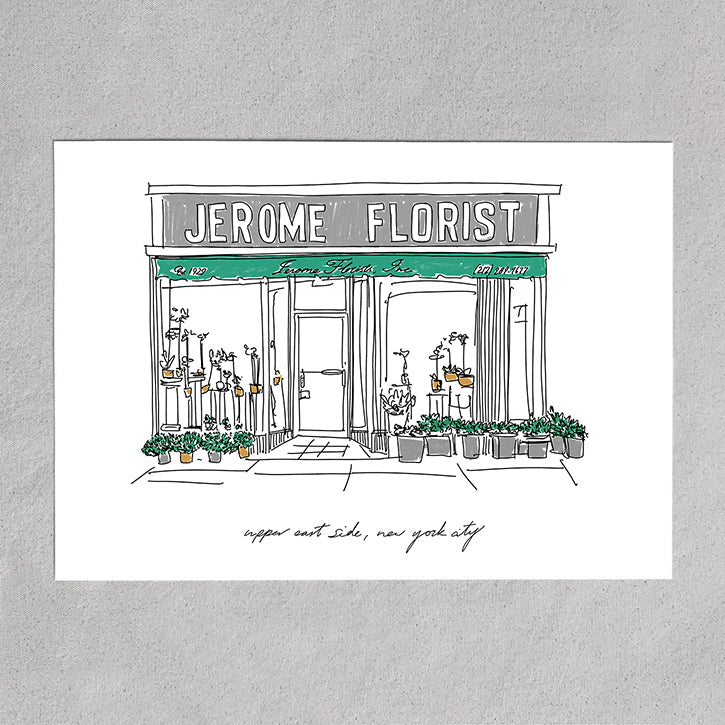 JEROME FLORIST
Est 1929 Jerome Florists, Inc. (212) 289-1677
upper east side, new york city